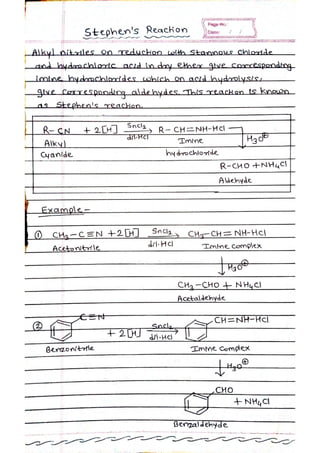 Stephen's Reaction
Page No.
Date: / /
Alkyl nitriles on reduction with Stannous Chloride
and hydrochloric acid in dry ether give corresponding
Imine hydrochlorides which on acid hydrolysis,
give corresponding aldehydes. This reaction is known
as Stephen's reaction.
R- CN + 2[H] Sncl₂ R- CH=NH-HCl
dil-HCl H₃O⊕
Alkyl Imine
Cyanide hydrochloride
R-CHO + NH₄Cl
Aldehyde
Example -
① CH₃-C≡N +2[H] Sncl₂ CH₃-CH=NH-HCl
dil-HCl
Acetonitrile Imine Complex
H₃O⊕
CH₃-CHO + NH₄Cl
Acetaldehyde
② C≡N CH=NH-HCl
+ 2[H] Sncl₂
dil-HCl
Benzonitrile Imine Complex
H₃O⊕
CHO
+ NH₄Cl
Benzaldehyde